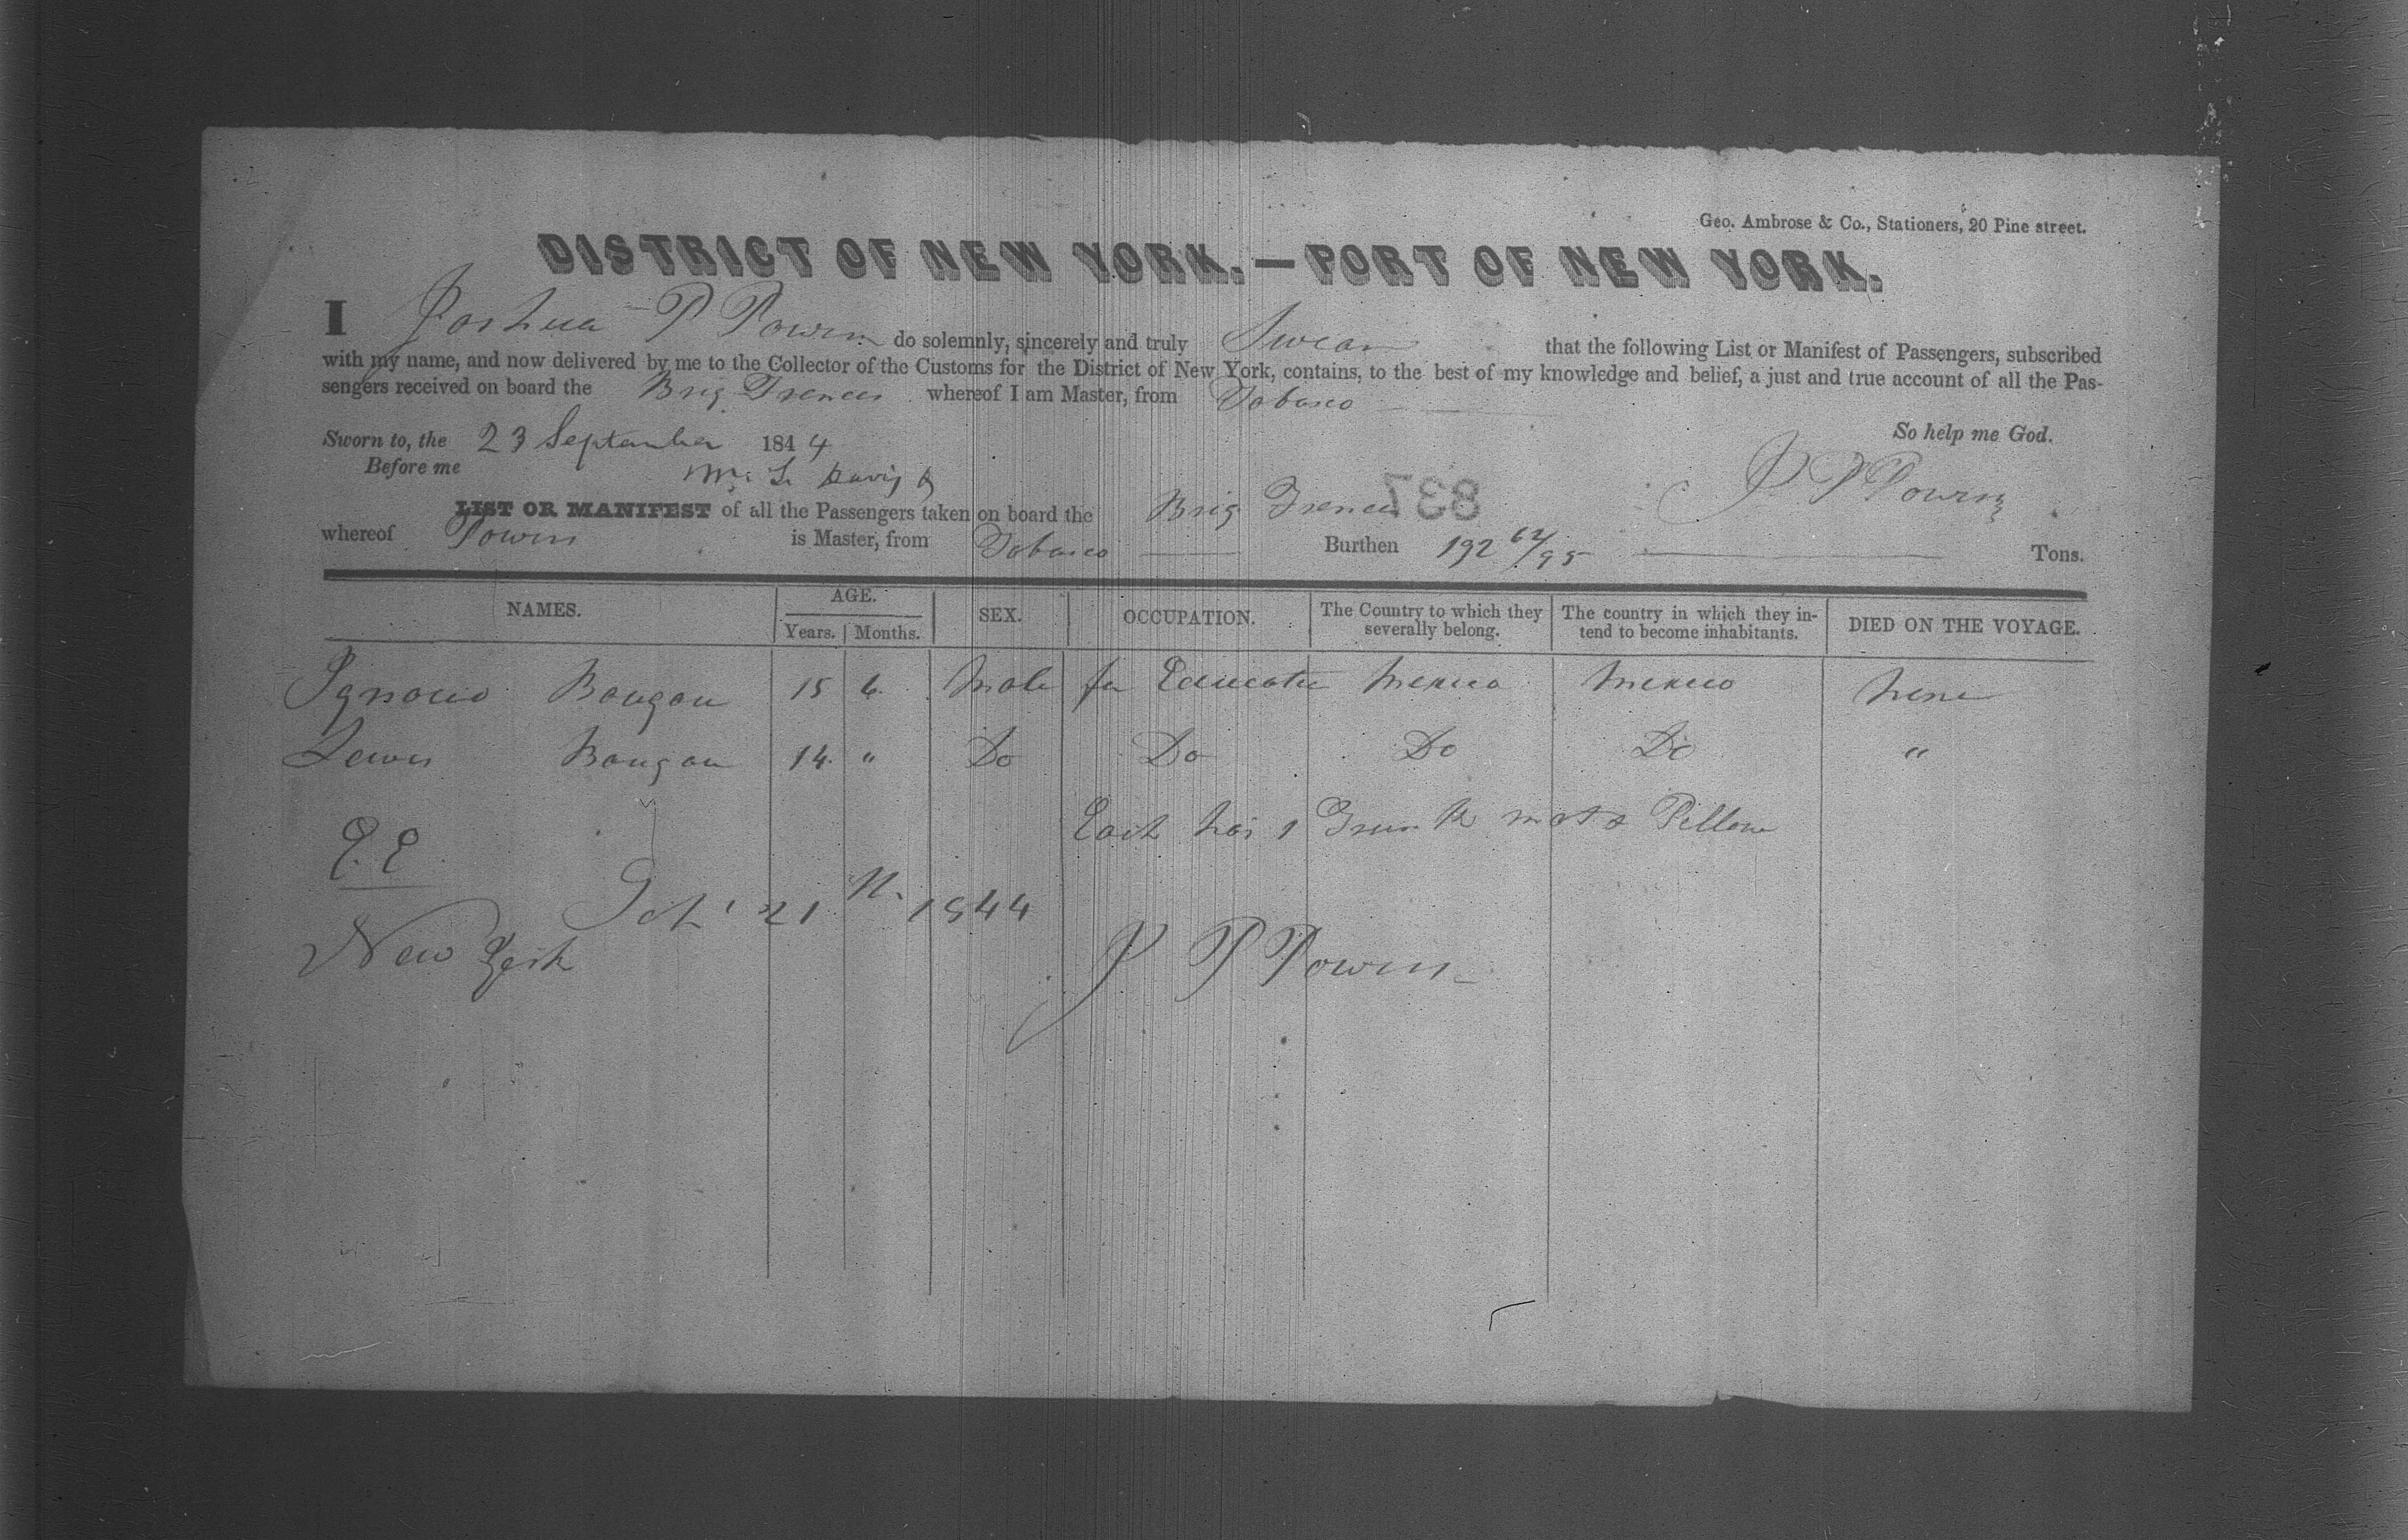 Geo. Ambrose & Co., Stationers, 20 Pine street.
DISTRICT OF NEW YORK.—PORT OF NEW YORK.
I Joshua P Powers do solemnly, sincerely and truly Swear that the following List or Manifest of Passengers, subscribed
with my name, and now delivered by me to the Collector of the Customs for the District of New York, contains, to the best of my knowledge and belief, a just and true account of all the Pas-
sengers received on board the Brig whereof I am Master, from Tobasco
Sworn to, the 23 September 1844 So help me God.
Before me J P Powers
LIST OR MANIFEST of all the Passengers taken on board the Brig 837
whereof Powers is Master, from Tobasco Burthen 192 62/95 Tons.
NAMES. AGE. Years. Months. SEX. OCCUPATION. The Country to which they severally belong. The country in which they in-tend to become inhabitants. DIED ON THE VOYAGE.
Ignacio 15 6 Male for Mexico Mexico None
Lewis 14 " Do Do Do Do "
Each has 1 Trunk Pillow
E.E
21 1844
New York J P Powers